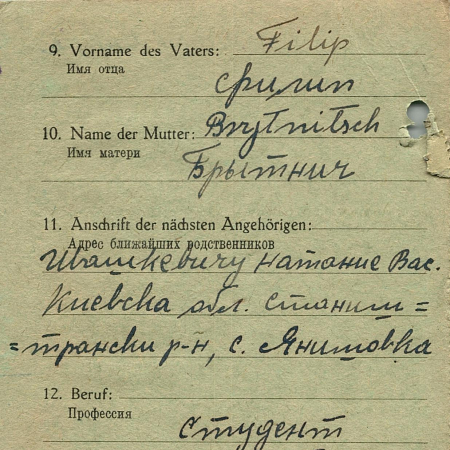 9. Vorname des Vaters: Filip
Имя отца
Филип
10. Name der Mutter: Brytnitsch
Имя матери
Брытнич
11. Anschrift der nächsten Angehörigen:
Адрес ближайших родственников
Ивашкевичу Натание Вас.
Киевска обл. Станиш=
=трански р-н, с. Янишовка
12. Beruf:
Профессия
студент